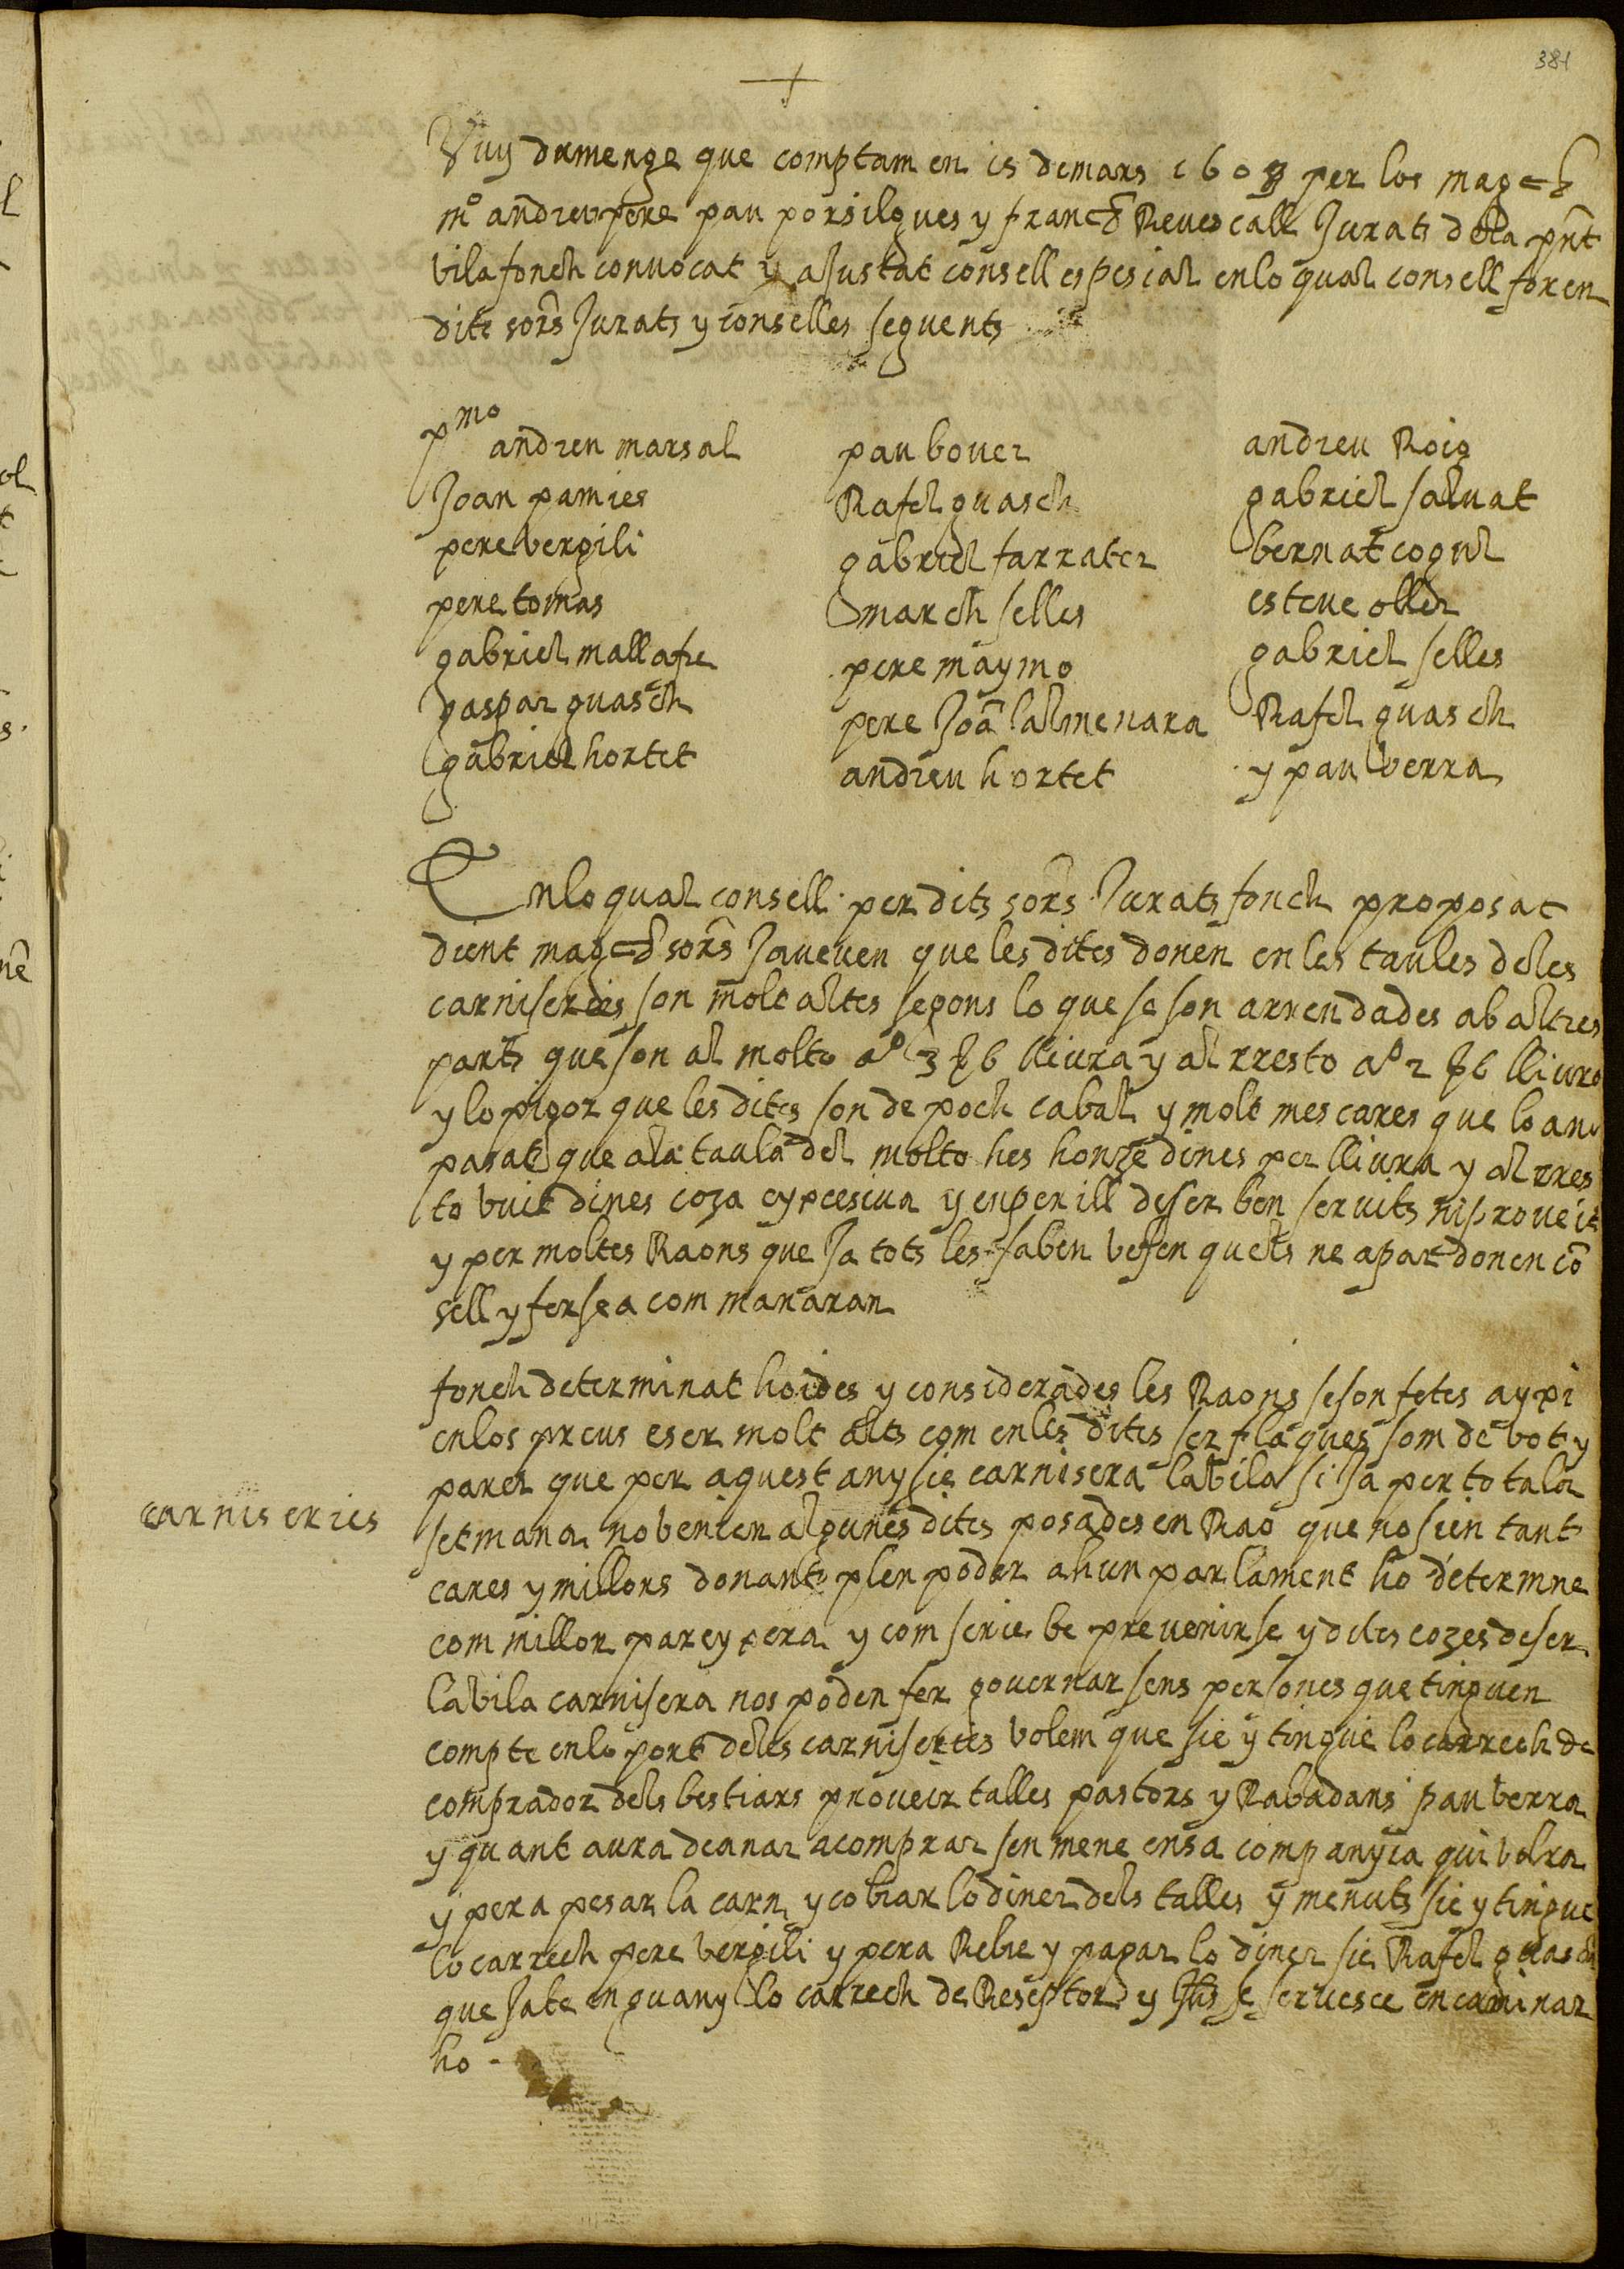 381
Vuy dumenge que comptam en 15 de mars 1603 per los magchs
mº andreu pere pau porsilgues y franch Reuescall Jurats dela pnt
vila fonch conuocat y aJustat consell espesial enlo qual consell foren
dits sors Jurats y conselles seguents
pmo andreu marsal
Joan pamies
pere vergili
pere tomas
gabriel mallafre
gaspar guasch
gabriel hortet
pau bouer
Rafel guasch
gabriel farrater
march selles
pere maymo
pere Joã salmenara
andreu hortet
andreu Roig
gabriel saluat
bernat cogul
esteue oller
gabriel selles
Rafel guasch
y pau verra
Enlo qual consell per dits sors Jurats fonch proposat
dient magchs sors Ja veuen que les dites donen en les taules deles
carniseries son molt altes segons lo que se son arrendades ab altres
parts que son al molto aº 3 ẞ 6 lliura y al rresto aº 2 ẞ 6 lliura
y lo pigor que les dites son de poch cabal y molt mes cares que lo any
pasat que ala taula del molto hes honze dines per lliura y al rres
to vuit dines coza eypcesiua y en perill de ser ben seruits ni proueits
y per moltes Raons que Ja tots les saben vesen quels ne apar donen cõ
sell y ferse a com manaran
fonch determinat hoides y considerades les Raons se son fetes aypi
enlos preus eser molt alts com enles dites ser flaques som de vot y
parer que per aquest any sie carnisera la vila si Ja per tota la
carniseries
setmana no venien algunes dites posades en Rao que no sien tant
cares y millors donant plen poder ahun parlament ho determne
com millor pareypera y com serie be preuenirse y dites cozes de ser
la vila carnisera nos poden fer gouernar sens persones que tinguen
compte enlo port deles carniseries volem que sie y tingue lo carrech de
comprador dels bestiars proueir talles pastors y Rabadans pau verra
y quant aura de anar acomprar sen mene en sa companyia qui volra
y pera pesar la carn y cobrar lo diner dels talles y menuts sie y tingue
lo carrech pere vergili y pera Rebre y pagar lo diner sie Rafel guasch
que Ja te enguany lo carrech de Reseptor y Jhs se seruesce encaminar
ho